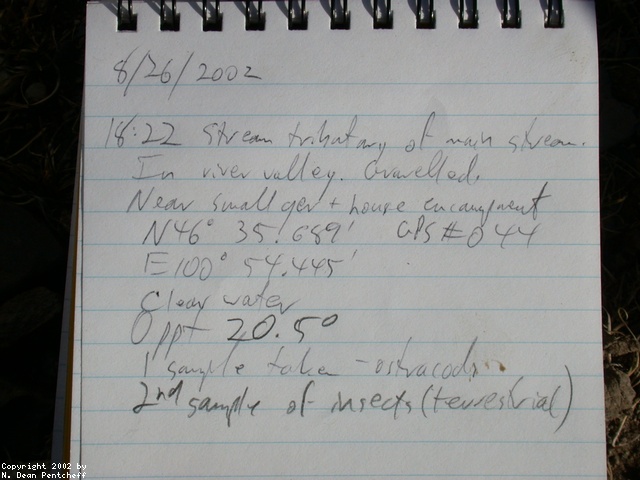 8/26/2002
18:22 Stream tributary of main stream.
In river valley. Gravelled.
Near small ger + house encampment
N46° 35.689' GPS #044
E100° 54.445'
Clear water
0 ppt 20.5°
1 sample taken - ostracods
2nd sample of insects (terrestrial)
Copyright 2002 by
N. Dean Pentcheff